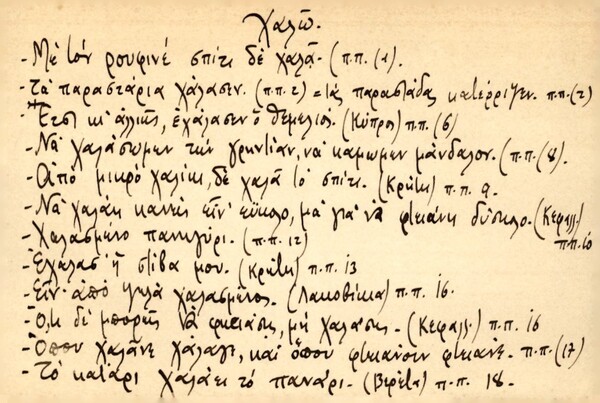 Χαλῶ.
- Μὲ τὸν ρουφινέ σπίτι δὲ χαλᾷ. (π.π. (1).
- Τὰ παραστάρια χάλασεν. (π.π 2) = τὰς παραστάδας κατέρριψεν. π.π. (2)
- Ἔτσι κι' ἀλλιῶς, ἐχάλασεν ὁ θεμελιός. (Κύπρος) π.π. (6)
- Νὰ χαλάσωμεν τὴν, νὰ κάμωμεν μάνταλον. (π.π. (8).
- Ἀπὸ μικρὸ χαλίκι, δὲ χαλᾷ τὸ σπίτι. (Κρήτη) π.π. 9.
- Νὰ χαλάῃ κανεὶς εἶν' εὔκολο, μὰ γιὰ νὰ φτειάνῃ δύσκολο. (Κεφαλλ.) π.π. 10
- Χαλασμένο πανηγύρι. (π.π. 12)
- Ἐχάλασ' ἡ στίβα μου. (Κρήτη) π.π. 13
- Εἶν' ἀπὸ ψηλὰ χαλασμένος. (Λακοβίκια) π.π. 16.
- Ὅ,τι δὲ μπορῇς νὰ φτιάσῃς, μὴ χαλάσῃς. (Κεφαλλ.) π.π. 16
- Ὅπου χαλᾶνε χάλαγε, καὶ ὅπου φτειάνουν φτειάνε. π.π. (17)
- Τὸ κατάρι χαλάει τὸ πανάρι. - π.π. 18.